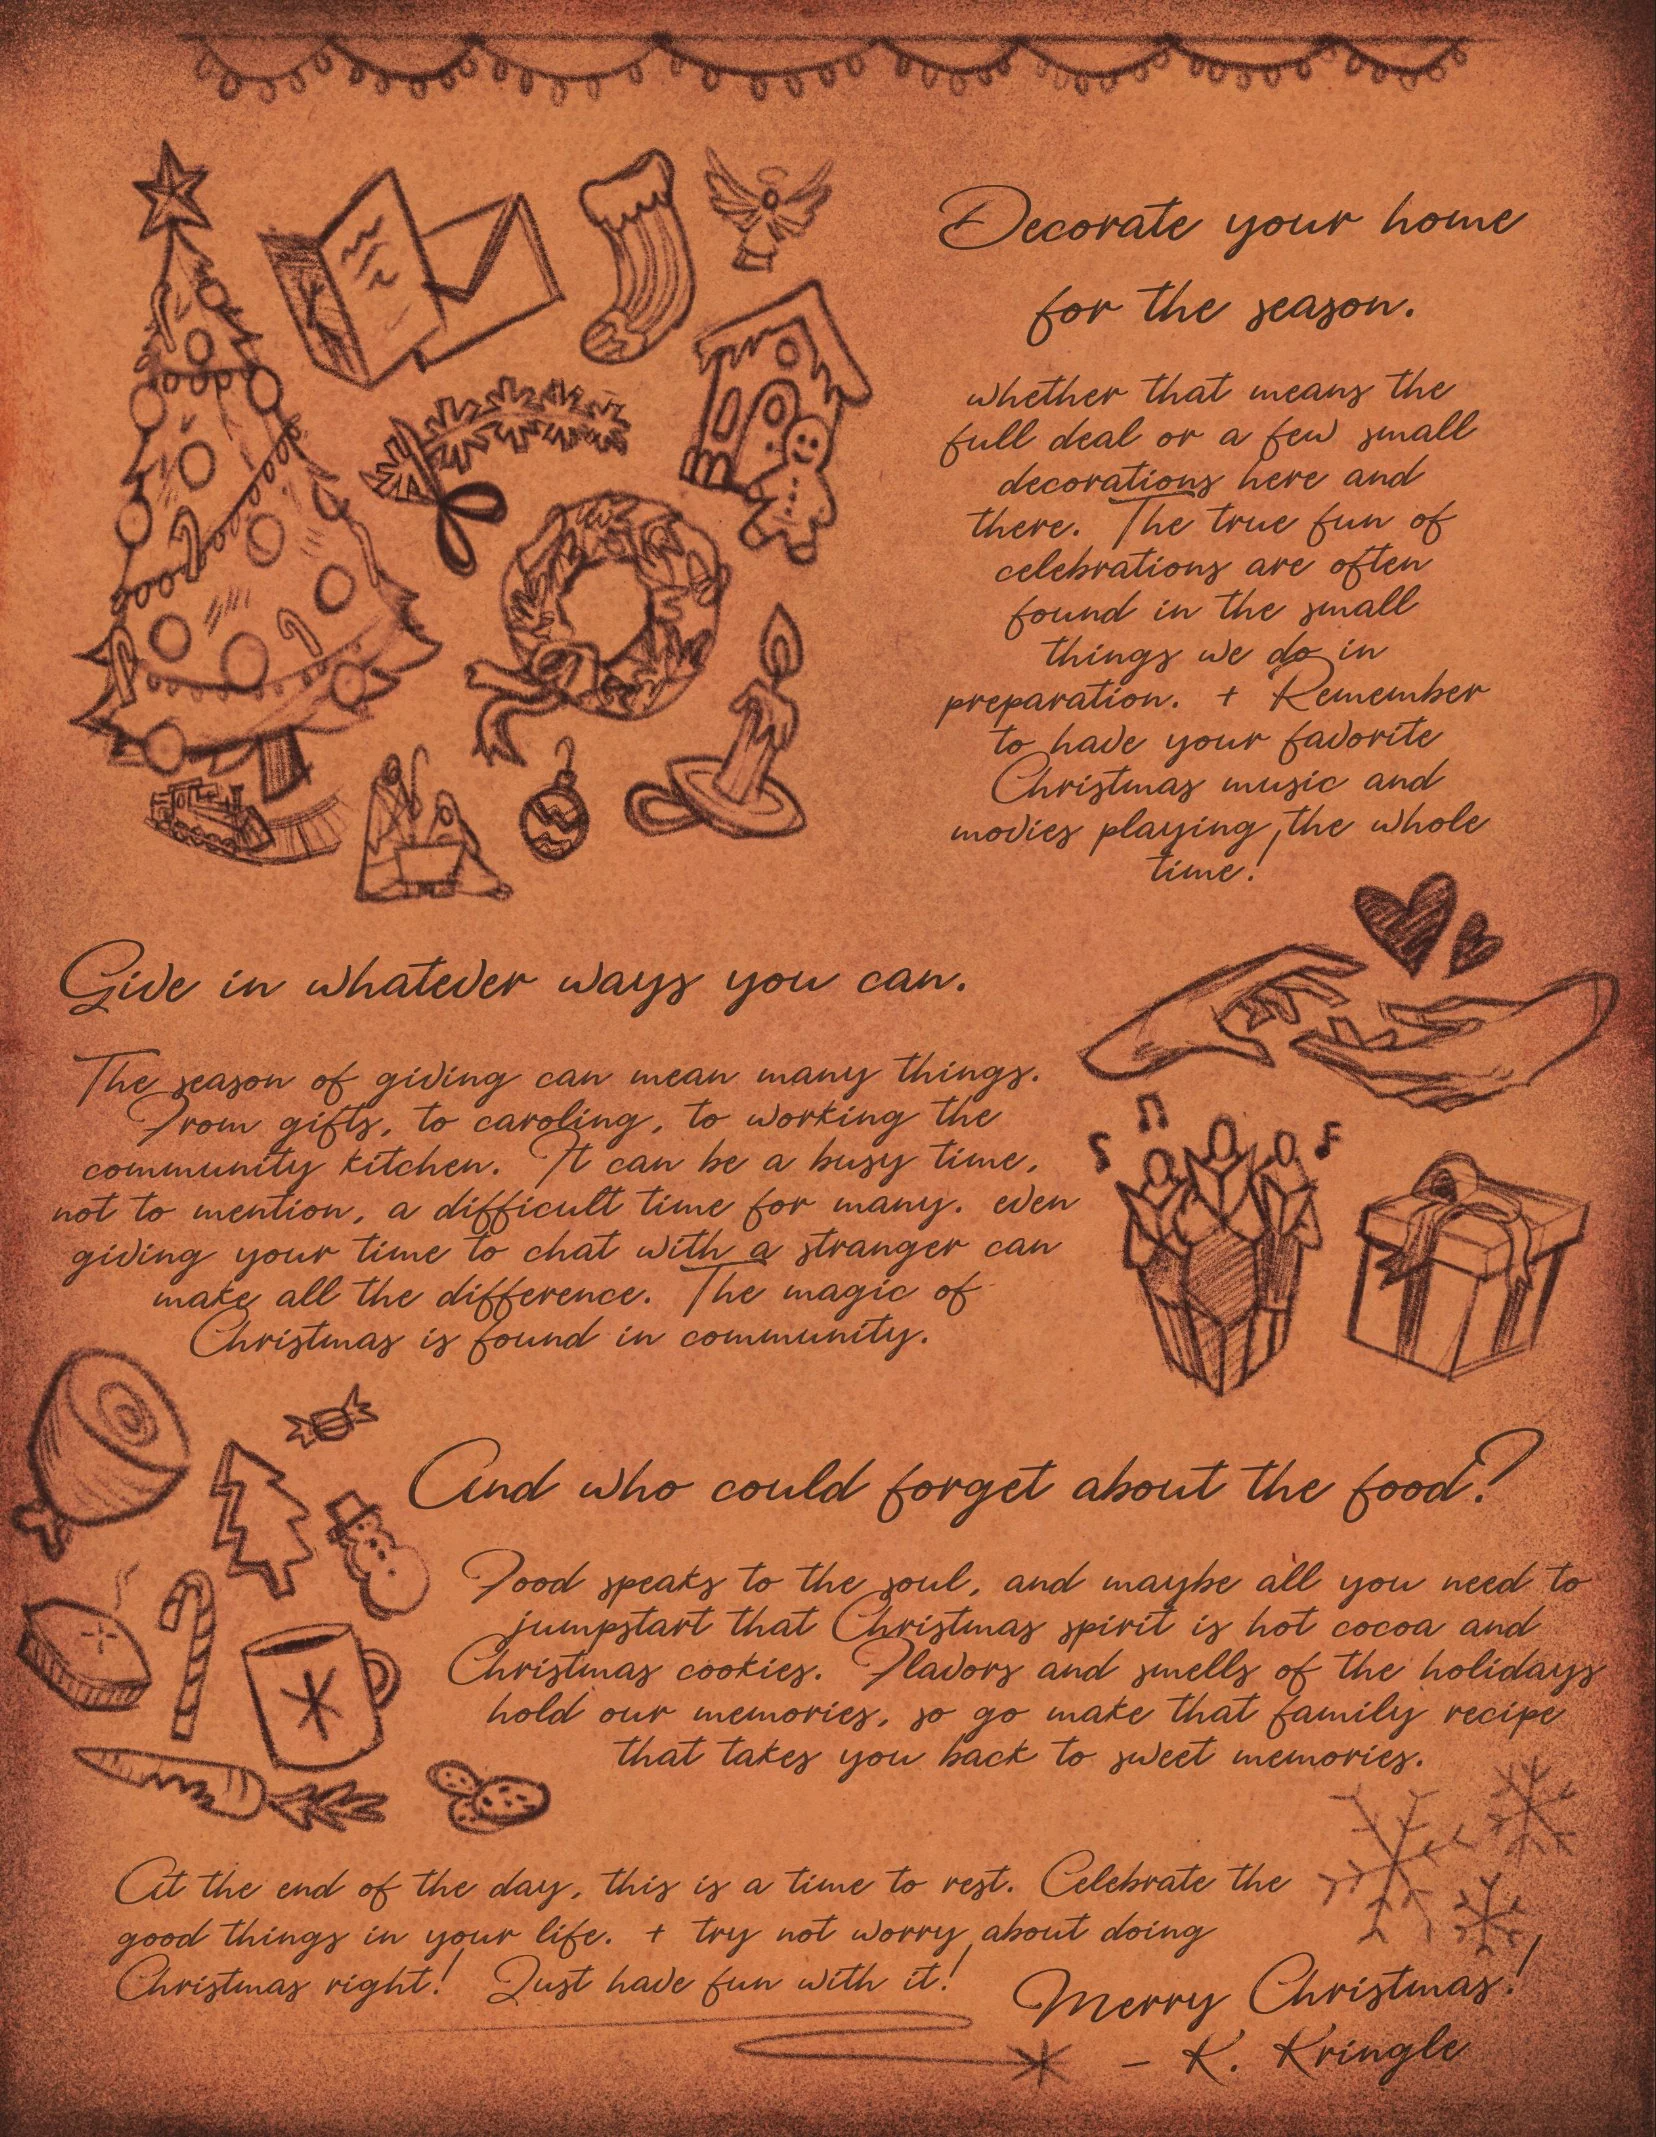 Decorate your home
for the season.
whether that means the
full deal or a few small
decorations here and
there. The true fun of
celebrations are often
found in the small
things we do in
preparation. + Remember
to have your favorite
Christmas music and
movies playing the whole
time!
Give in whatever ways you can.
The season of giving can mean many things.
From gifts, to caroling, to working the
community kitchen. It can be a busy time,
not to mention, a difficult time for many. even
giving your time to chat with a stranger can
make all the difference. The magic of
Christmas is found in community.
And who could forget about the food?
Food speaks to the soul, and maybe all you need to
jumpstart that Christmas spirit is hot cocoa and
Christmas cookies. Flavors and smells of the holidays
hold our memories, so go make that family recipe
that takes you back to sweet memories.
At the end of the day, this is a time to rest. Celebrate the
good things in your life. + try not worry about doing
Christmas right! Just have fun with it!
Merry Christmas!
- K. Kringle